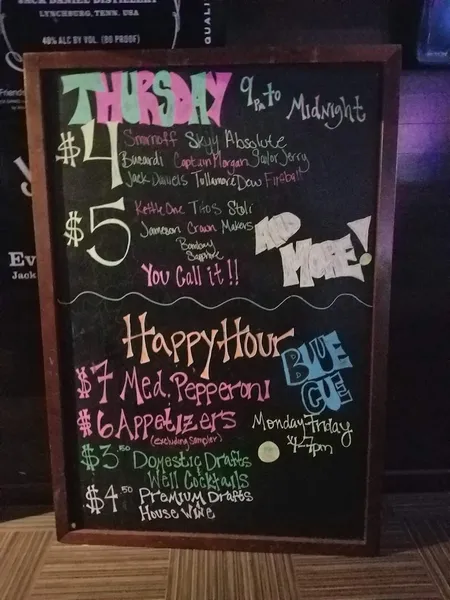 JACK DANIEL DISTILLERY
LYNCHBURG, TENN. USA
40% ALC BY VOL. (80 PROOF)
QUALI
Friends
Ev
Jack
THURSDAY 9PM to Midnight
$4 Smirnoff Skyy Absolute
Bacardi Captain Morgan Sailor Jerry
Jack Daniels Tullamore Dew Fireball
$5 Kettle One Titos Stoli
Jameson Crown Makers
Bombay
Sapphire
AND MORE!
You Call it!!
Happy Hour
BLUE CUE
$7 Med. Pepperoni
$6 Appetizers
(excluding sampler)
Monday-Friday
4-7pm
$3.50 Domestic Drafts
Well Cocktails
$4.50 Premium Drafts
House Wine